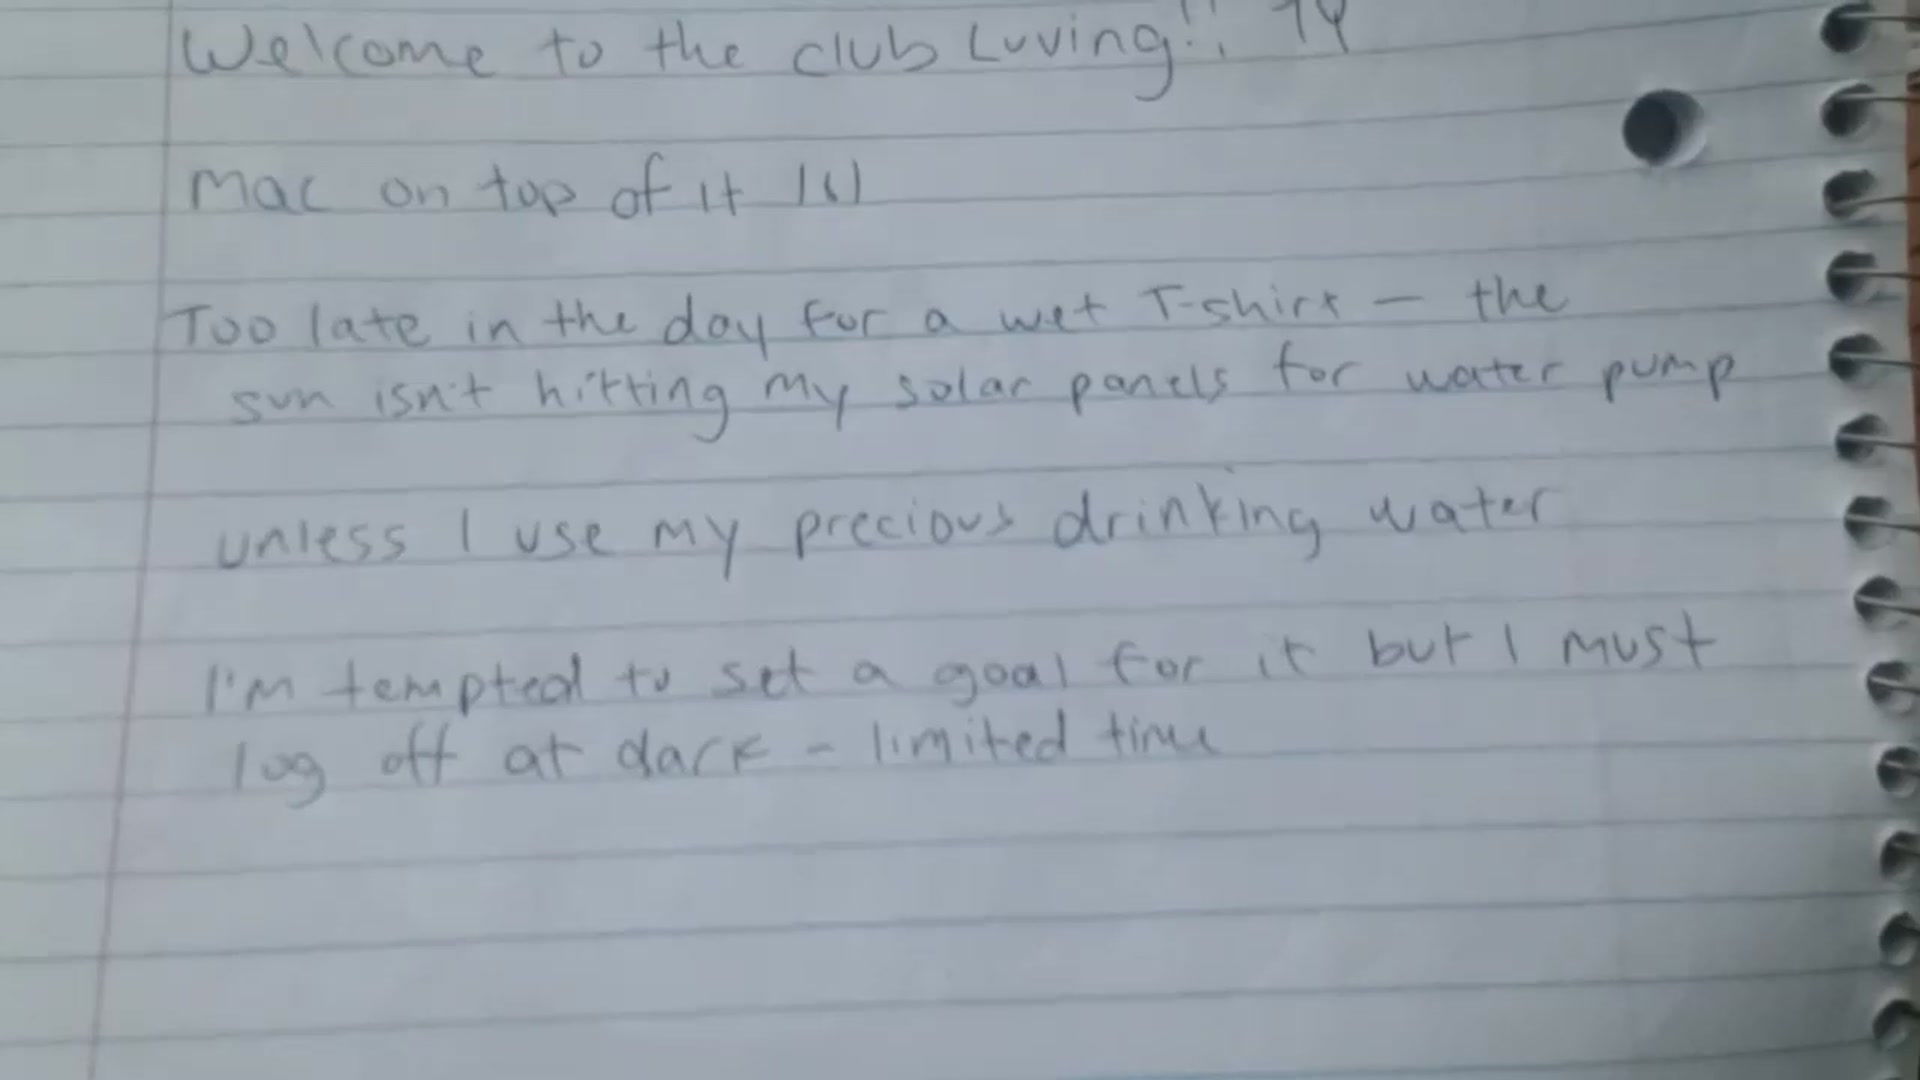 Welcome to the club Luving!! TY
Mac on top of it lol
Too late in the day for a wet T-shirt – the
sun isn't hitting my solar panels for water pump
unless I use my precious drinking water
I'm tempted to set a goal for it but I must
log off at dark – limited time